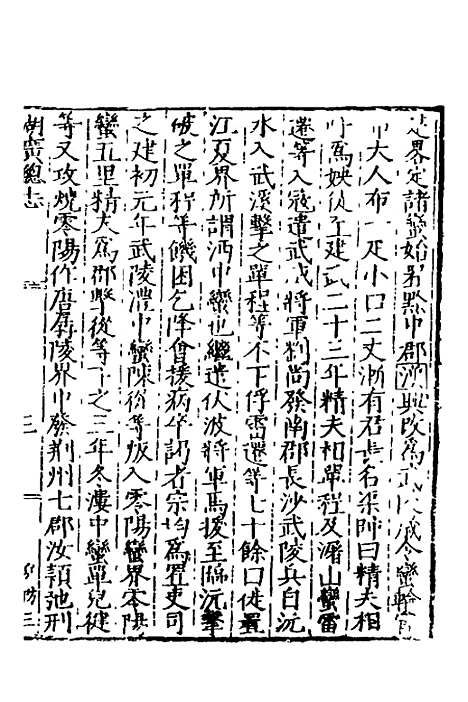 定界定諸蠻始為黔中郡漢興改為武陵歲令蠻輸官
中大人布一疋小口二丈漸有君長名渠帥曰精夫相
呼為姎徒至建武二十三年精夫相單程及潳山蠻雷
遷等入寇遣武威將軍劉尚發南郡長沙武陵兵自沅
水入武溪擊之單程等不下俘雷遷等七十餘口徙置
江夏界所謂沔中蠻也繼遣伏波將軍馬援至臨沅擊
破之單程等饑困乞降會援病卒謁者宗均為置吏司
之建初元年武陵澧中蠻陳從等叛入零陽蠻界零陽
蠻五里精夫為郡擊從等下之三年冬漊中蠻單兒健
等又攻燒零陽作唐孱陵界中發荊州七郡汝潁弛刑
湖廣總志
三